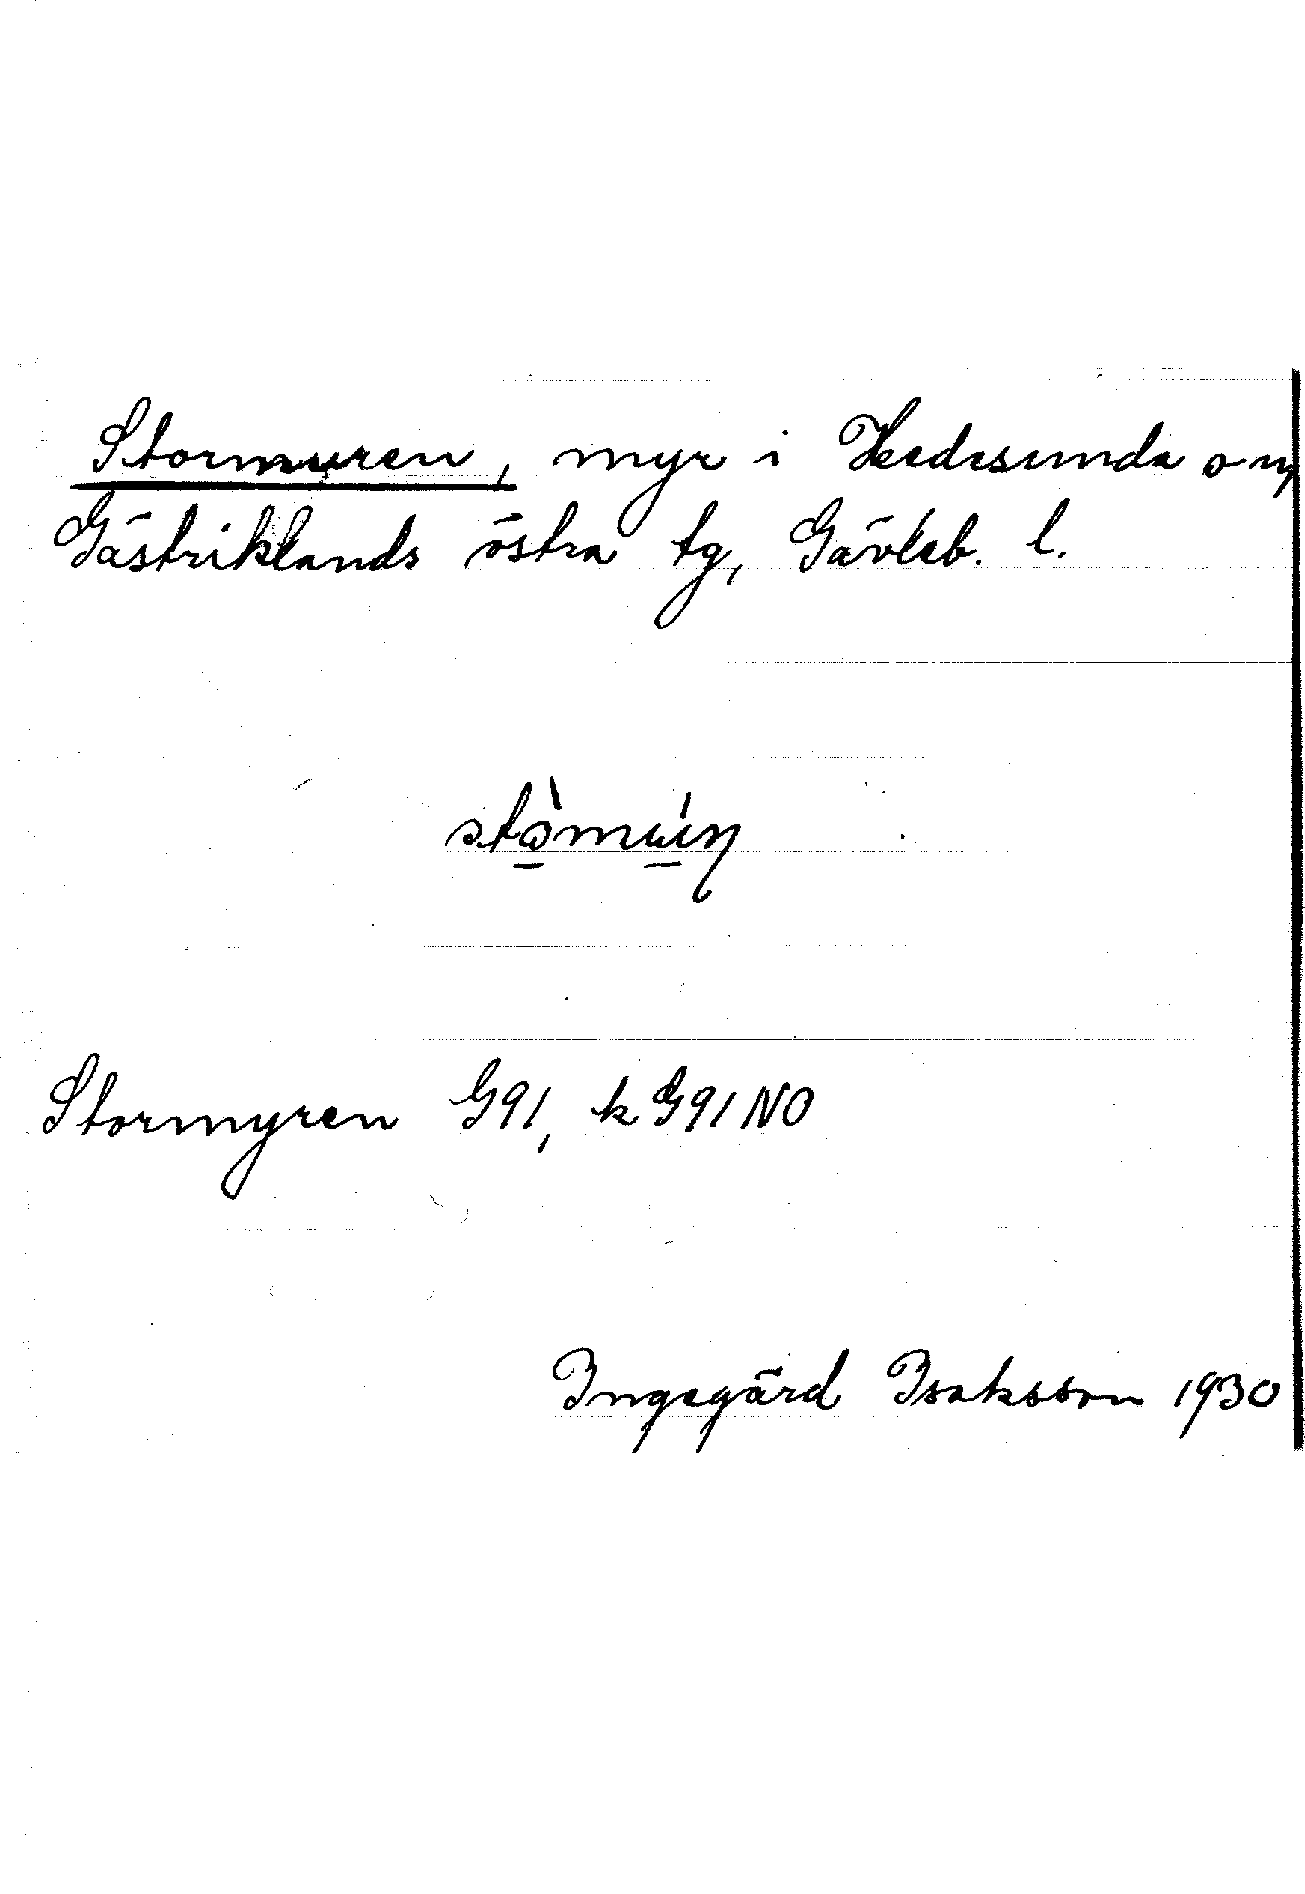 Stormyren, myr i Hedesunda sn,
Gästriklands östra tg, Gävleb. l.
Stormyren G91, k G91 NO
Ingegärd Isaksson 1930